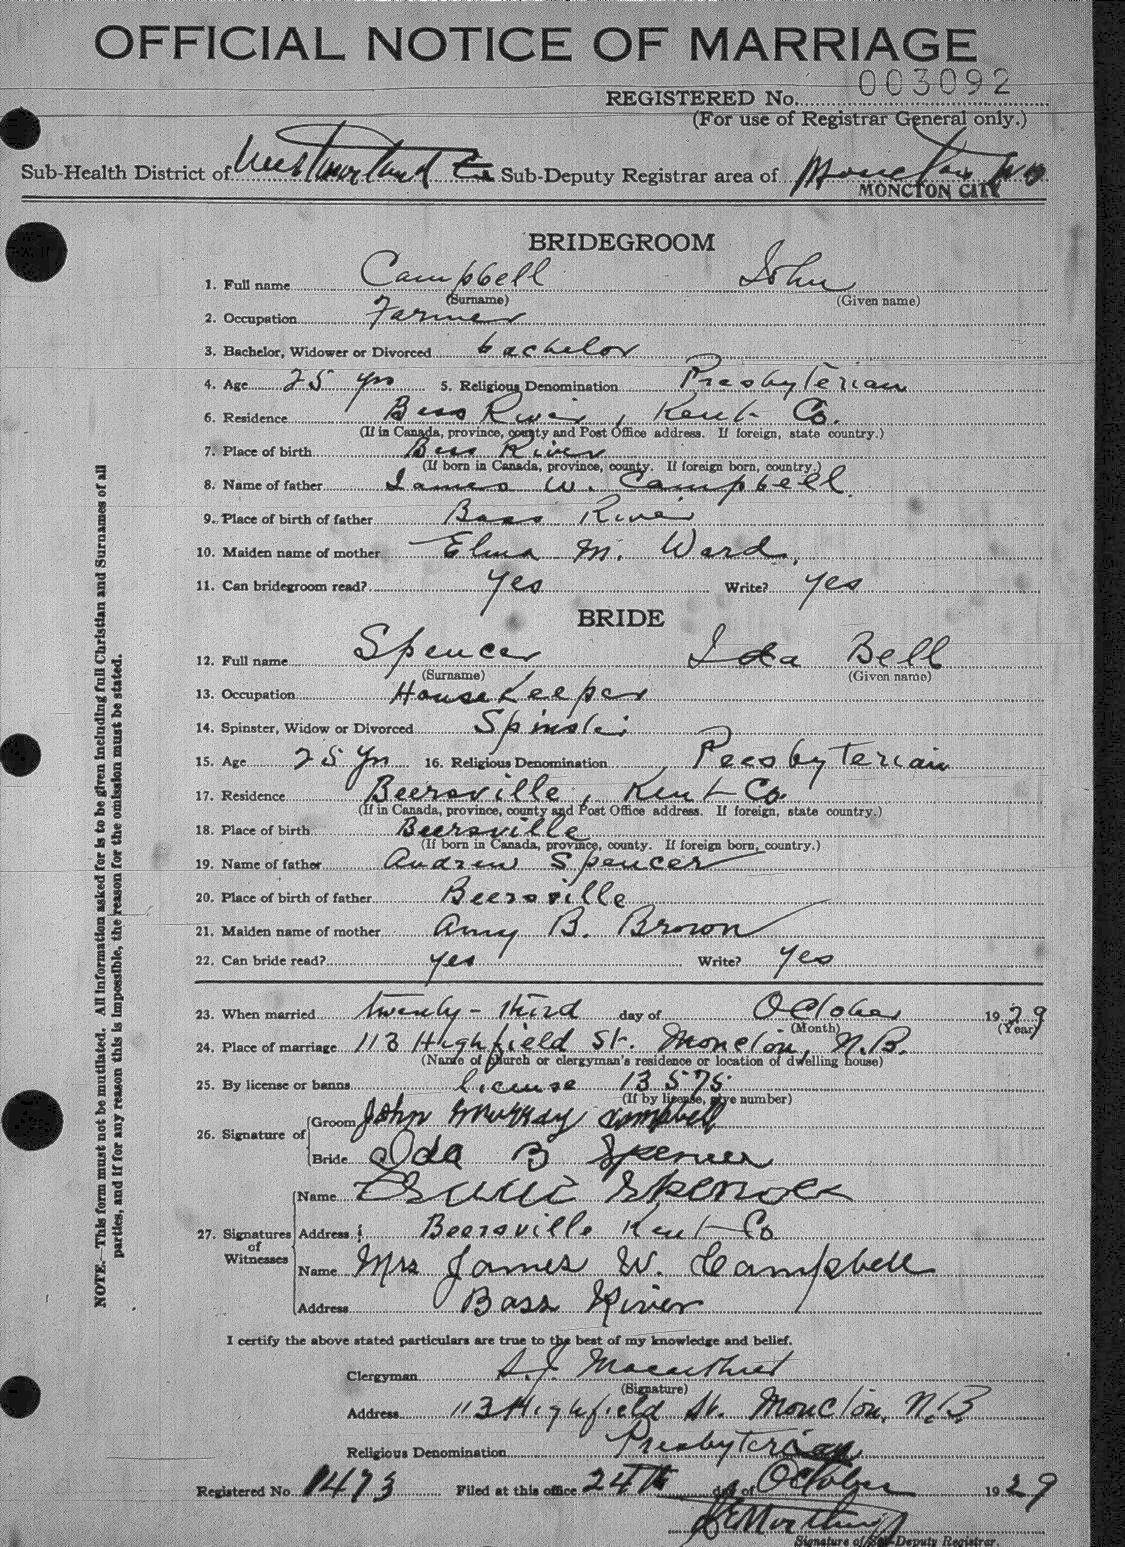 OFFICIAL NOTICE OF MARRIAGE
REGISTERED No. 003092
(For use of Registrar General only.)
Sub-Health District of Westmorland Co Sub-Deputy Registrar area of Moncton NB
MONCTON CITY
BRIDEGROOM
1. Full name Campbell John
(Surname) (Given name)
2. Occupation Farmer
3. Bachelor, Widower or Divorced bachelor
4. Age 25 yrs 5. Religious Denomination Presbyterian
6. Residence Bass River, Kent Co.
(If in Canada, province, county and Post Office address. If foreign, state country.)
7. Place of birth Bass River
(If born in Canada, province, county. If foreign born, country.)
8. Name of father James W. Campbell
9. Place of birth of father Bass River
10. Maiden name of mother Elma M. Ward
11. Can bridegroom read? yes Write? yes
BRIDE
12. Full name Spencer Ida Bell
(Surname) (Given name)
13. Occupation Housekeeper
14. Spinster, Widow or Divorced Spinster
15. Age 25 yrs 16. Religious Denomination Presbyterian
17. Residence Beersville, Kent Co.
(If in Canada, province, county and Post Office address. If foreign, state country.)
18. Place of birth Beersville
(If born in Canada, province, county. If foreign born, country.)
19. Name of father Andrew Spencer
20. Place of birth of father Beersville
21. Maiden name of mother Amy B. Brown
22. Can bride read? yes Write? yes
23. When married twenty-third day of October 1929
(Month) (Year)
24. Place of marriage 113 Highfield St. Moncton, N.B.
(Name of church or clergyman's residence or location of dwelling house)
25. By license or banns license 13575
(If by license, give number)
26. Signature of Groom John Murray Campbell
Bride Ida B Spencer
27. Signatures of Witnesses
Name Spencer
Address Beersville Kent Co
Name Mrs James W. Campbell
Address Bass River
I certify the above stated particulars are true to the best of my knowledge and belief.
Clergyman A.J. Macarthur
(Signature)
Address 113 Highfield St. Moncton, N.B.
Religious Denomination Presbyterian
Registered No 1473 Filed at this office 24th day of October 1929
Signature of Sub-Deputy Registrar.
NOTE.—This form must not be mutilated. All information asked for is to be given including full Christian and Surnames of all
parties, and if for any reason this is impossible, the reason for the omission must be stated.